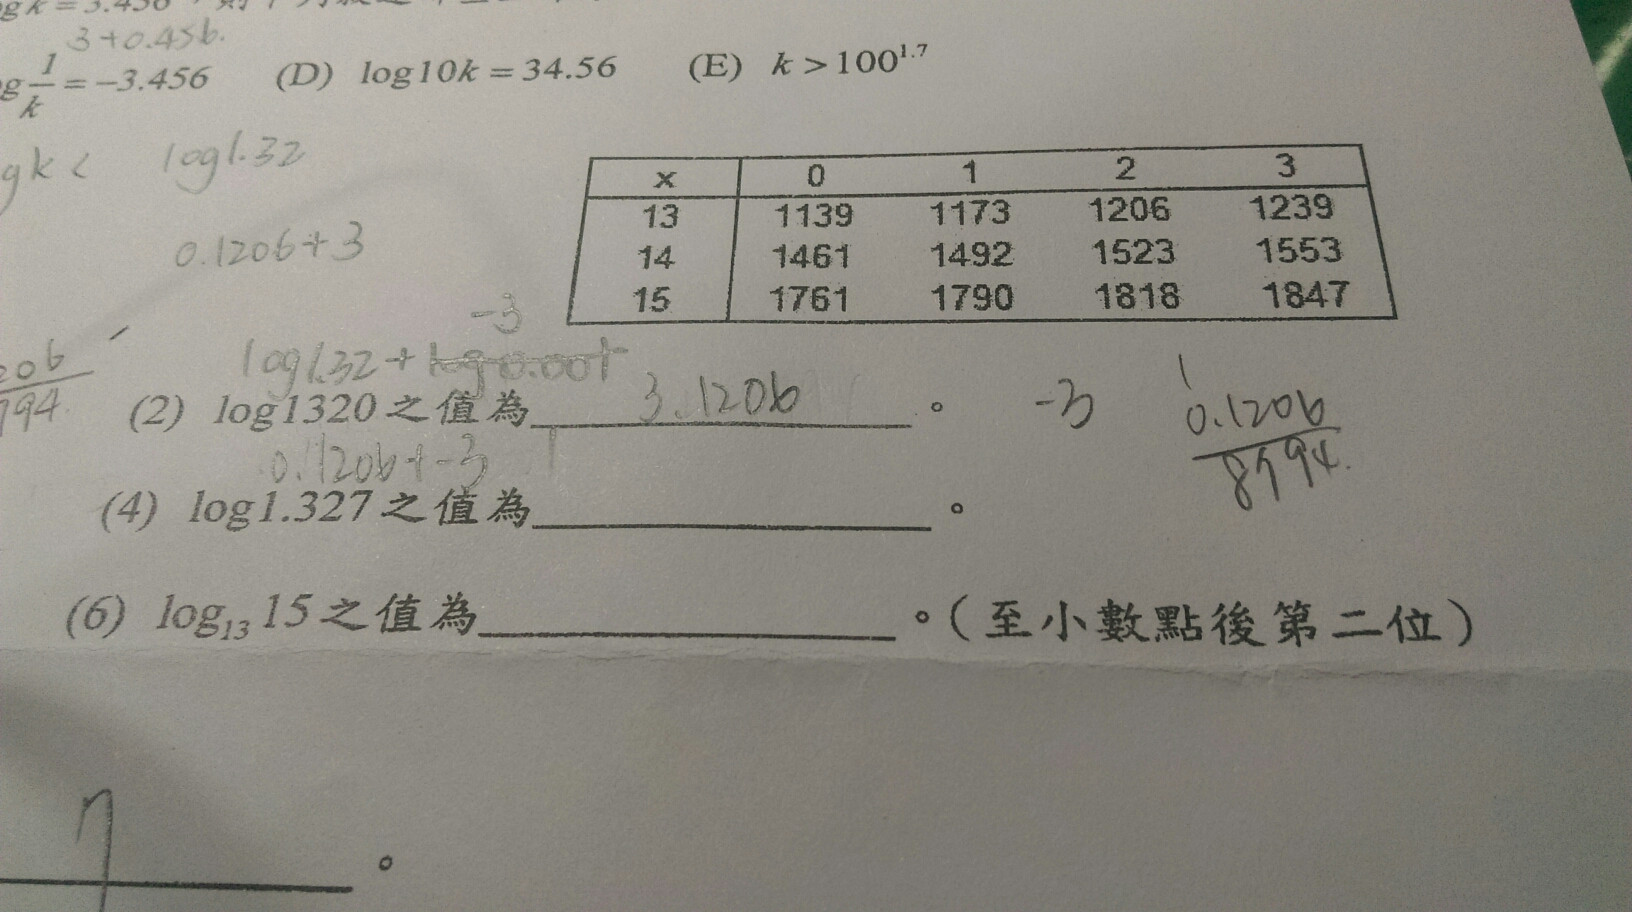 3+0.456.
g 1/k = -3.456 (D) log10k = 34.56 (E) k > 100^1.7
gk < log1.32
0.1206+3
x 0 1 2 3
13 1139 1173 1206 1239
14 1461 1492 1523 1553
15 1761 1790 1818 1847
-3
log1.32+log0.001
(2) log1320之值為 3.1206 。
-3
1
0.1206
8794.
206
794.
0.1206+-3
(4) log1.327之值為 。
(6) log₁₃15之值為 。(至小數點後第二位)
。